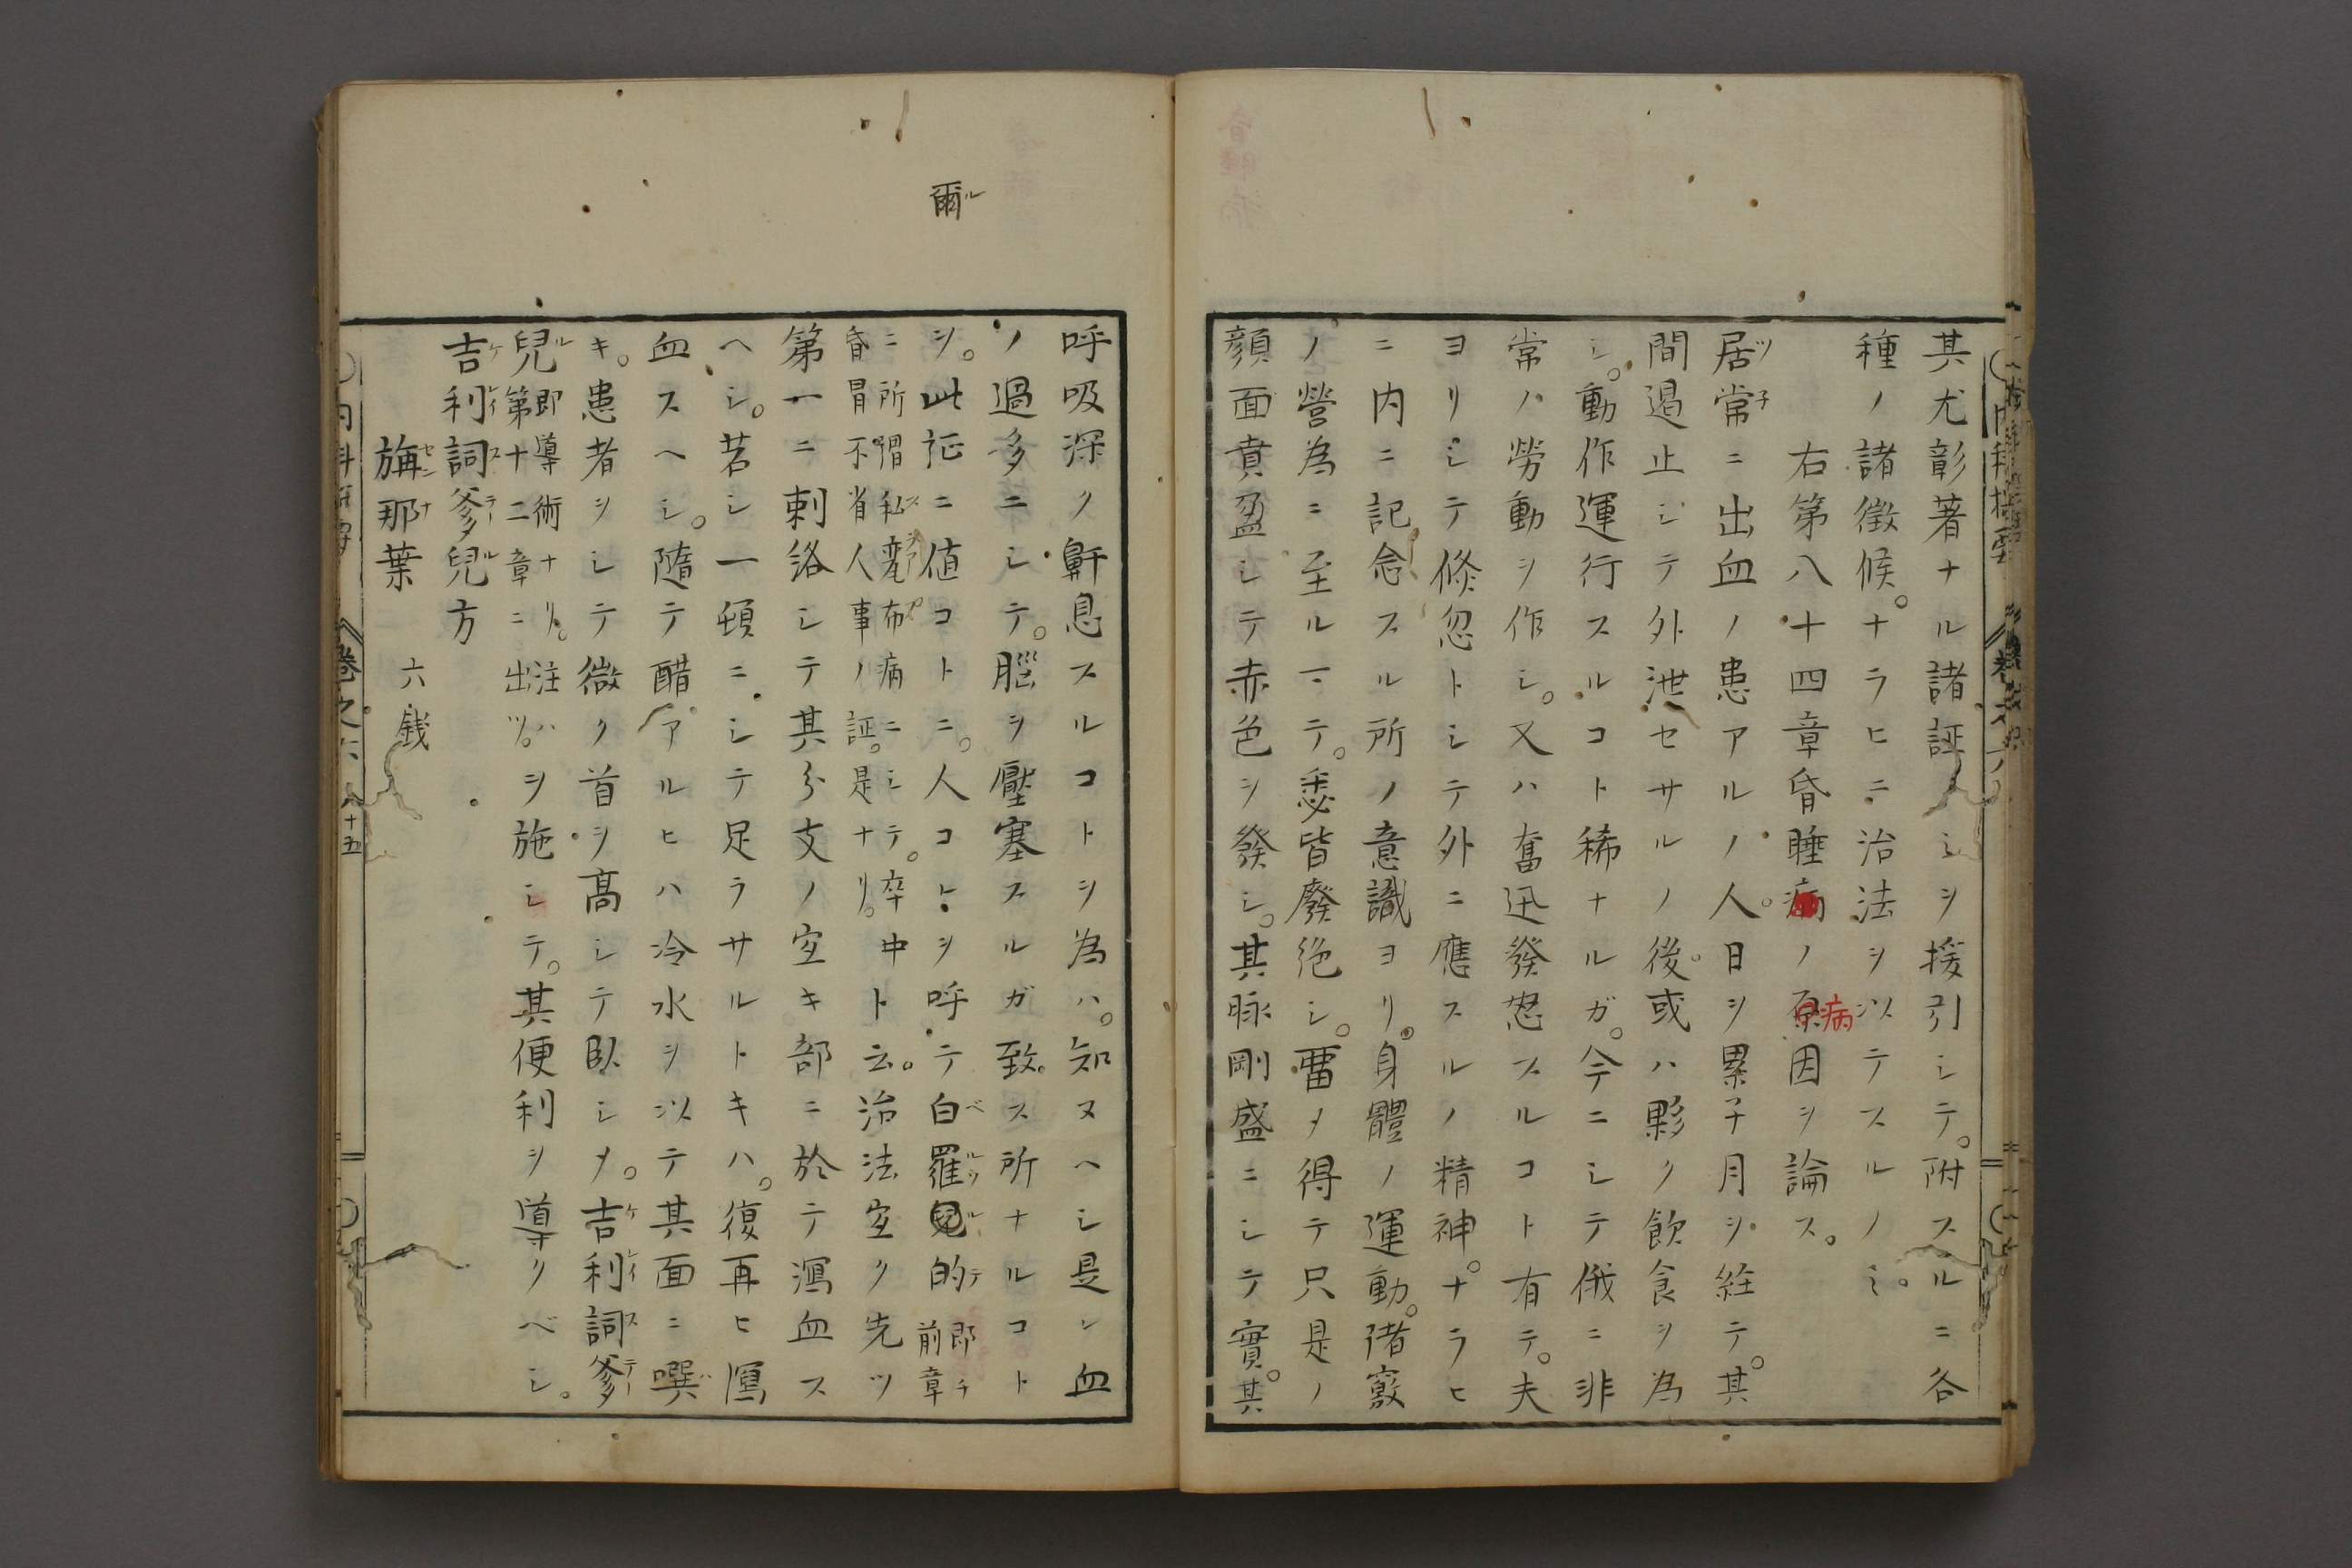 其尤彰著ナル諸証ヲ援引シテ。附スルニ各
種ノ諸徴候。ナラヒニ治法ヲ以テスルノミ。
右第八十四章昏睡病ノ原因ヲ論ス。
病
居常ニ出血ノ患アルノ人。日ヲ累子月ヲ経テ。其
ツ子
間遏止シテ外泄セサルノ後。或ハ夥ク飲食ヲ為
シ。動作運行スルコト稀ナルガ。今ニシテ俄ニ非
常ノ労動ヲ作シ。又ハ奮迅發怒スルコト有テ。夫
ヨリシテ倏忽トシテ外ニ應スルノ精神。ナラヒ
ニ内ニ記念スル所ノ意識ヨリ。身體ノ運動。諸竅
ノ營為ニ至ルマテ。悉皆廢絶シ。畱メ得テ只是ノ
顔面賁盈シテ赤色ヲ發シ。其脉剛盛ニシテ實。其
爾ル
呼吸深ク鼾息スルコトヲ為ハ。知ヌヘシ是レ血
ノ過多ニシテ。腦ヲ壓塞スルガ致ス所ナルコト
ヲ。此証ニ値コトニ。人コレヲ呼テ白羅兒的前章即チ
ベルヲルーテ
ニ所謂私布病ニシテ。卒中ト云。治法宜ク先ツ
昏冒不省人事ノ証。是ナリ。
第一ニ刺絡シテ其分支ノ宜キ部ニ於テ瀉血ス
ヘシ。若シ一頓ニシテ足ラサルトキハ。復再ヒ瀉
血スヘシ。隨テ醋アルヒハ冷水ヲ以テ其面ニ噀
キ。患者ヲシテ微ク首ヲ髙シテ臥シメ。吉利詞爹
ケレイステー
兒即導術ナリ。注ハ第十二章ニ出ツ。ヲ施シテ。其便利ヲ導クベシ。
ル
吉利詞爹兒方
ケレイステール
旃那葉　六銭
センナ
巻之六
八十五